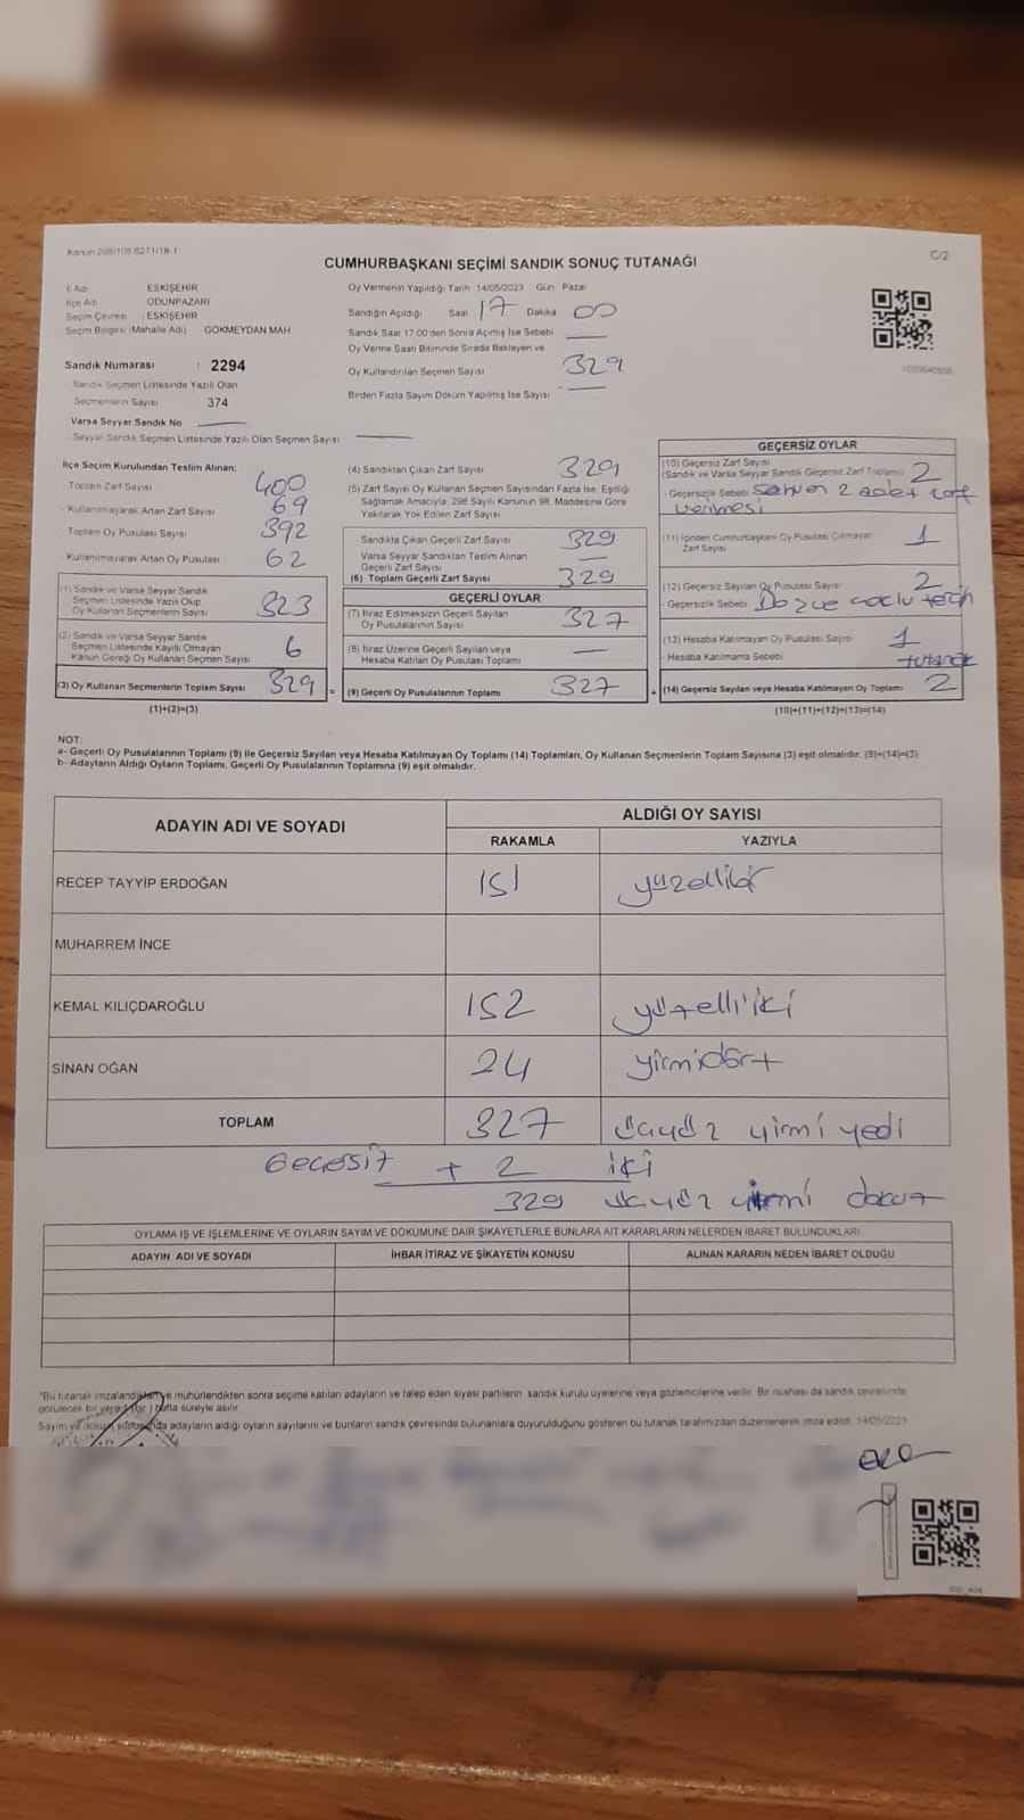 Kanun 298/105 6271/18-1
C/2
CUMHURBAŞKANI SEÇİMİ SANDIK SONUÇ TUTANAĞI
İl Adı ESKİŞEHİR
İlçe Adı ODUNPAZARI
Seçim Çevresi : ESKİŞEHİR
Seçim Bölgesi (Mahalle Adı) GÖKMEYDAN MAH
Sandık Numarası : 2294
Sandık Seçmen Listesinde Yazılı Olan
Seçmenlerin Sayısı 374
Varsa Seyyar Sandık No
Seyyar Sandık Seçmen Listesinde Yazılı Olan Seçmen Sayısı
Oy Vermenin Yapıldığı Tarih 14/05/2023 Gün Pazar
Sandığın Açıldığı Saat 17 Dakika 00
Sandık Saat 17:00'den Sonra Açılmış İse Sebebi
Oy Verme Saati Bitiminde Sırada Bekleyen ve
Oy Kullandırılan Seçmen Sayısı 329
Birden Fazla Sayım Döküm Yapılmış İse Sayısı
İlçe Seçim Kurulundan Teslim Alınan:
Toplam Zarf Sayısı 400
Kullanılmayarak Artan Zarf Sayısı 69
Toplam Oy Pusulası Sayısı 392
Kullanılmayarak Artan Oy Pusulası 62
(1) Sandık ve Varsa Seyyar Sandık
Seçmen Listesinde Yazılı Olup
Oy Kullanan Seçmenlerin Sayısı 323
(2) Sandık ve Varsa Seyyar Sandık
Seçmen Listesinde Kayıtlı Olmayan
Kanun Gereği Oy Kullanan Seçmen Sayısı 6
(3) Oy Kullanan Seçmenlerin Toplam Sayısı 329 =
(1)+(2)=(3)
(4) Sandıktan Çıkan Zarf Sayısı 329
(5) Zarf Sayısı Oy Kullanan Seçmen Sayısından Fazla İse, Eşitliği
Sağlamak Amacıyla, 298 Sayılı Kanunun 98. Maddesine Göre
Yakılarak Yok Edilen Zarf Sayısı
Sandıkta Çıkan Geçerli Zarf Sayısı 329
Varsa Seyyar Sandıktan Teslim Alınan
Geçerli Zarf Sayısı
(6) Toplam Geçerli Zarf Sayısı 329
GEÇERLİ OYLAR
(7) İtiraz Edilmeksizin Geçerli Sayılan
Oy Pusulalarının Sayısı 327
(8) İtiraz Üzerine Geçerli Sayılan veya
Hesaba Katılan Oy Pusulası Toplamı
(9) Geçerli Oy Pusulalarının Toplamı 327 +
GEÇERSİZ OYLAR
(10) Geçersiz Zarf Sayısı
(Sandık ve Varsa Seyyar Sandık Geçersiz Zarf Toplamı) 2
Geçersizlik Sebebi Sehven 2 adet zarf
verilmesi
(11) İçinden Cumhurbaşkanı Oy Pusulası Çıkmayan
Zarf Sayısı 1
(12) Geçersiz Sayılan Oy Pusulası Sayısı 2
Geçersizlik Sebebi
(13) Hesaba Katılmayan Oy Pusulası Sayısı 1
Hesaba Katılmama Sebebi tutanak
(14) Geçersiz Sayılan veya Hesaba Katılmayan Oy Toplamı 2
(10)+(11)+(12)+(13)=(14)
NOT:
a- Geçerli Oy Pusulalarının Toplamı (9) ile Geçersiz Sayılan veya Hesaba Katılmayan Oy Toplamı (14) Toplamları, Oy Kullanan Seçmenlerin Toplam Sayısına (3) eşit olmalıdır. (9)+(14)=(3)
b- Adayların Aldığı Oyların Toplamı, Geçerli Oy Pusulalarının Toplamına (9) eşit olmalıdır.
ADAYIN ADI VE SOYADI
ALDIĞI OY SAYISI
RAKAMLA YAZIYLA
RECEP TAYYİP ERDOĞAN 151 yüzellibir
MUHARREM İNCE
KEMAL KILIÇDAROĞLU 152 yüzelli iki
SİNAN OĞAN 24 yirmidört
TOPLAM 327 üçyüz yirmi yedi
Geçersiz + 2 iki
329 üçyüz yirmi dokuz
OYLAMA İŞ VE İŞLEMLERİNE VE OYLARIN SAYIM VE DÖKÜMÜNE DAİR ŞİKAYETLERLE BUNLARA AİT KARARLARIN NELERDEN İBARET BULUNDUKLARI
ADAYIN ADI VE SOYADI İHBAR İTİRAZ VE ŞİKAYETİN KONUSU ALINAN KARARIN NEDEN İBARET OLDUĞU
"Bu tutanak imzalandıktan ve mühürlendikten sonra seçime katılan adayların ve talep eden siyasi partilerin sandık kurulu üyelerine veya gözlemcilerine verilir. Bir nüshası da sandık çevresinde
görülecek bir yere bir hafta süreyle asılır.
Sayım ve döküm sonunda adayların aldığı oyların sayılarını ve bunların sandık çevresinde bulunanlara duyurulduğunu gösteren bu tutanak tarafımızdan düzenlenerek imza edildi. 14/05/2023